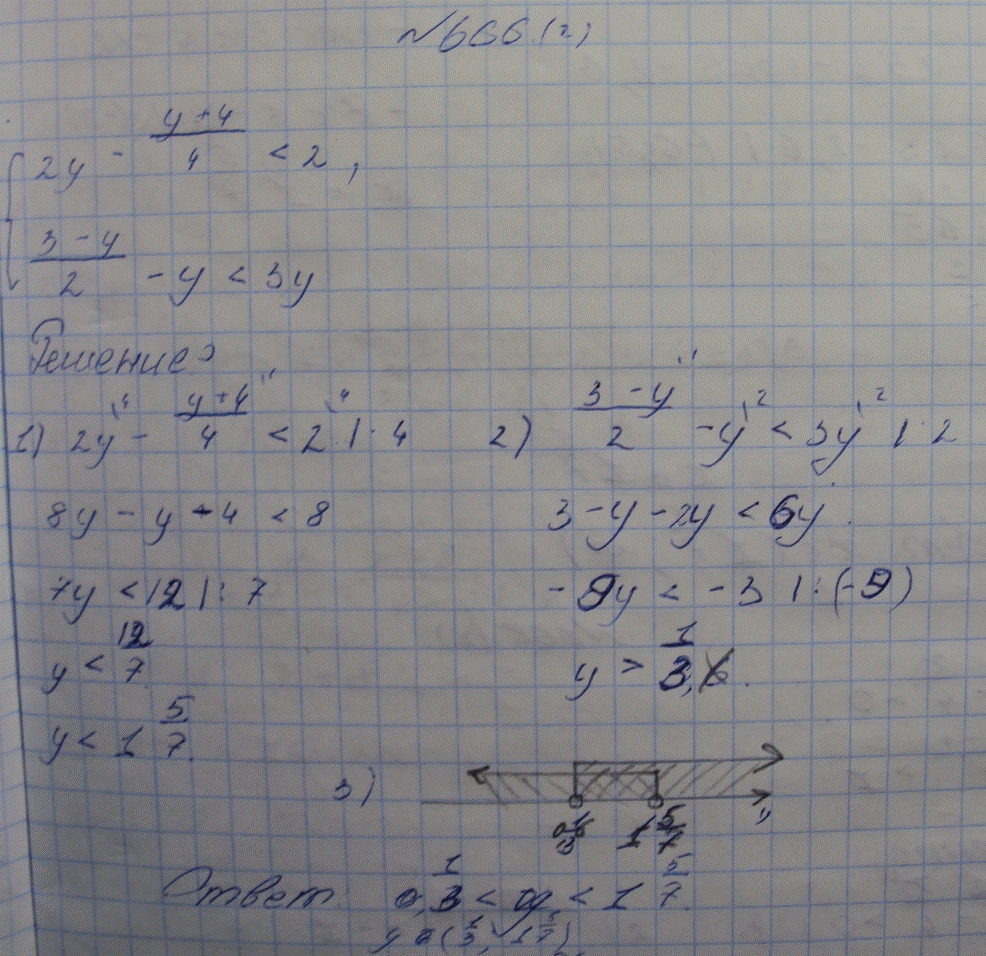 №666.(2)
{ 2y - (y+4)/4 < 2,
{ (3-y)/2 - y < 3y
Решение:
1) 2y - (y+4)/4 < 2 |·4
8y - y - 4 < 8
7y < 12 |: 7
y < 12/7.
y < 1 5/7.
2) (3-y)/2 - y < 3y |·2
3 - y - 2y < 6y.
-9y < -3 |: (-9)
y > 1/3
3)
1 5/7
Ответ. 1/3 < y < 1 5/7.
y (1/3; 1 5/7)